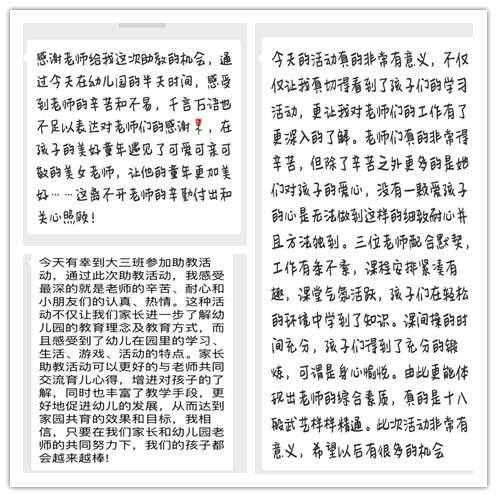 感谢老师给我这次助教的机会，通
过今天在幼儿园的半天时间，感受
到老师的辛苦和不易，千言万语也
不足以表达对老师们的感谢🌹，在
孩子的美好童年遇见了可爱可亲可
敬的美女老师，让他的童年更加美
好……这离不开老师的辛勤付出和
关心照顾！
今天有幸到大三班参加助教活
动，通过此次助教活动，我感受
最深的就是老师的辛苦、耐心和
小朋友们的认真、热情。这种活
动不仅让我们家长进一步了解幼
儿园的教育理念及教育方式，而
且感受到了幼儿在园里的学习、
生活、游戏、活动的特点。家长
助教活动可以更好的与老师共同
交流育儿心得，增进对孩子的了
解，同时也丰富了教学手段，更
好地促进幼儿的发展，从而达到
家园共育的效果和目标，我相
信，只要在我们家长和幼儿园老
师的共同努力下，我们的孩子都
会越来越棒!
今天的活动真的非常有意义，不仅
仅让我真切得看到了孩子们的学习
活动，更让我对老师们的工作有了
更深入的了解。老师们真的非常得
辛苦，但除了辛苦之外更多的是她
们对孩子的爱心，没有一颗爱孩子
的心是无法做到这样的细致耐心并
且方法独到。三位老师配合默契，
工作有条不紊，课程安排紧凑有
趣，课堂气氛活跃，孩子们在轻松
的环境中学到了知识。课间操的时
间充分，孩子们得到了充分的锻
炼，可谓是身心愉悦。由此更能体
现出老师的综合素质，真的是十八
般武艺样样精通。此次活动非常有
意义，希望以后有很多的机会